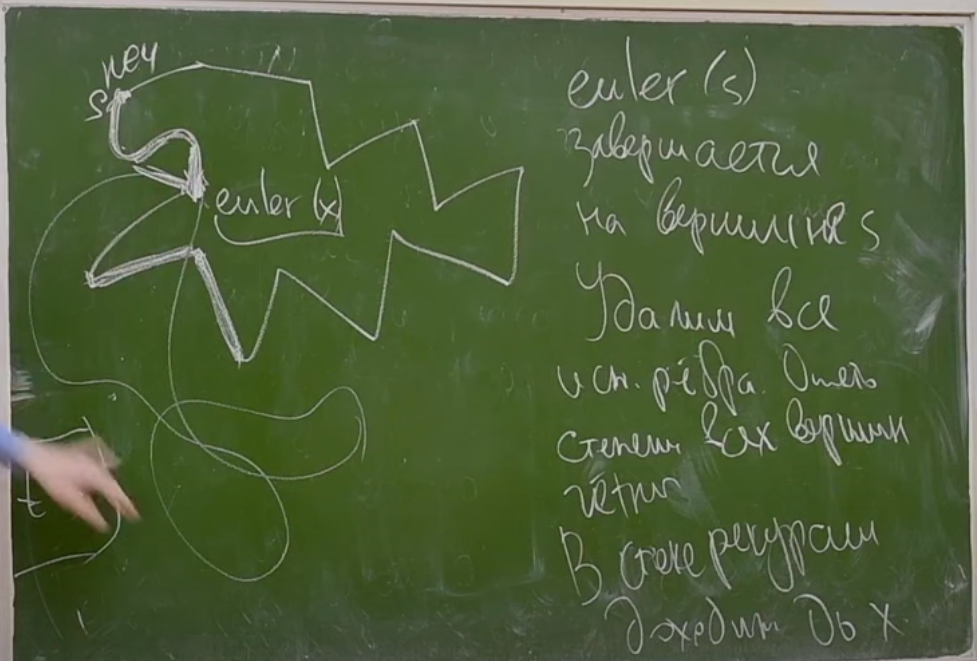 неч
s
euler (x)
t
euler (s)
завершается
на вершине s
Удалим все
исп. рёбра. Опять
степени всех вершин
чётны
В стеке рекурсии
доходим до x